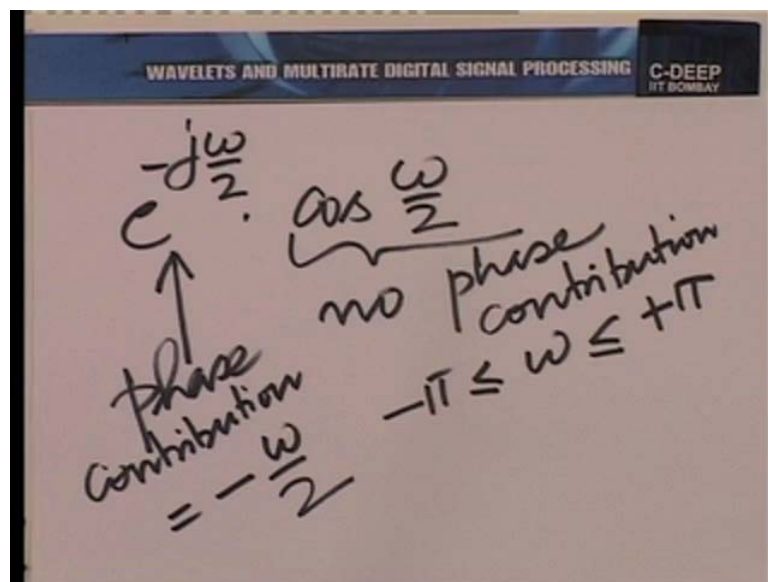 WAVELETS AND MULTIRATE DIGITAL SIGNAL PROCESSING
C-DEEP
IIT BOMBAY
e^{-jω/2} . cos ω/2
no phase
contribution
-π ≤ ω ≤ +π
phase
contribution
= - ω/2